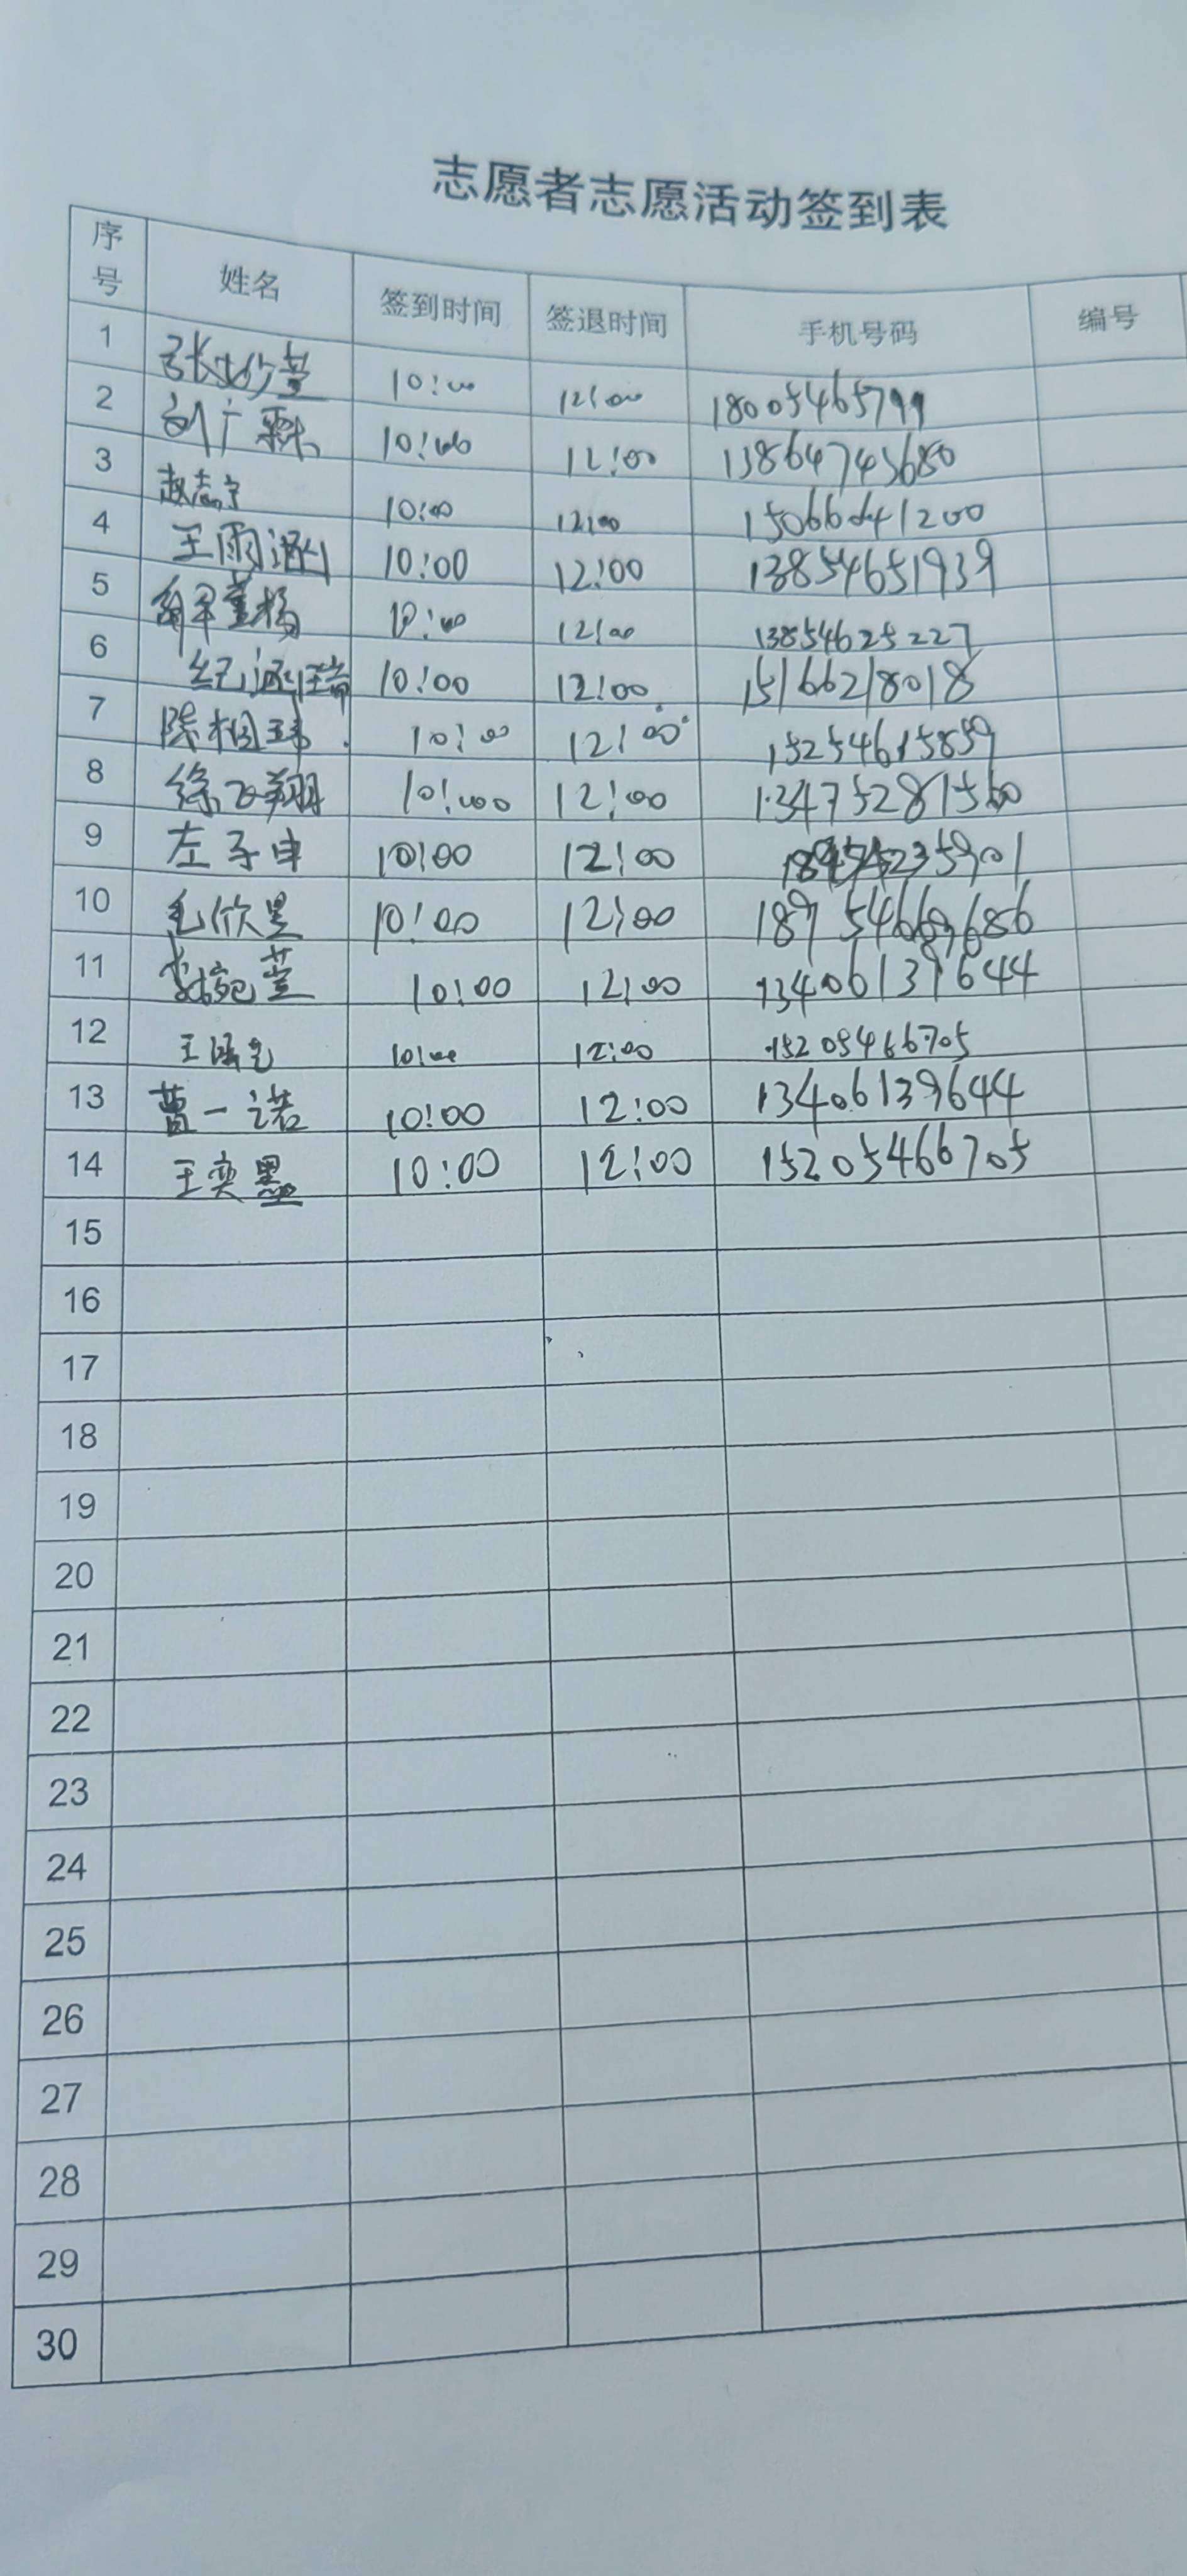 志愿者志愿活动签到表
序号 姓名 签到时间 签退时间 手机号码 编号
1 张妙萱 10:00 12:00 18005465799
2 刘广霖 10:00 12:00 13864743680
3 赵志宁 10:00 12:00 15066041200
4 王雨涵 10:00 12:00 13854651939
5 10:00 12:00 13854625227
6 纪涵瑄 10:00 12:00 15166218018
7 陈相玮 10:00 12:00 15254615859
8 徐飞翔 10:00 12:00 13475281560
9 左子申 10:00 12:00
10 毛欣墨 10:00 12:00
11 李婉萱 10:00 12:00 13406139644
12 10:00 12:00 15205466705
13 曹一诺 10:00 12:00 13406139644
14 王奕墨 10:00 12:00 15205466705
15
16
17
18
19
20
21
22
23
24
25
26
27
28
29
30